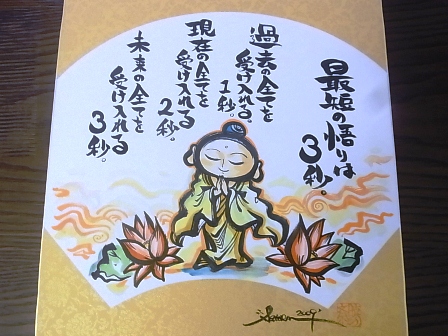 最短の悟りは
3秒。
過去の全てを
受け入れる
1秒。
現在の全てを
受け入れる
2秒。
未来の全てを
受け入れる
3秒。
2009